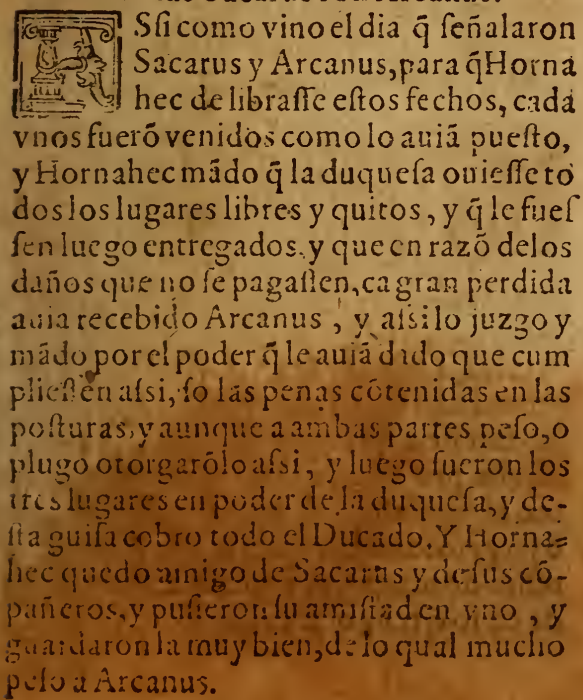 ASſi como vino el dia q̃ ſeñalaron
Sacarus y Arcanus, para q̃ Horna
hec de libraſſe eſtos fechos, cada
vnos fuerõ venidos como lo auiã pueſto,
y Hornahec mãdo q̃ la duqueſa ouieſſe to
dos los lugares libres y quitos, y q̃ le fueſ
ſen luego entregados. y que en razõ delos
daños que no ſe pagaſſen, ca gran perdida
auia recebido Arcanus, y aſsi lo juzgo y
mãdo por el poder q̃ le auiã dado que cum
plieſſen aſsi, ſo las penas cõtenidas en las
poſturas, y aunque a ambas partes peſo, o
plugo otorgarõlo aſsi, y luego fueron los
tres lugares en poder de la duqueſa, y de-
ſta guiſa cobro todo el Ducado. Y Horna=
hec quedo amigo de Sacarus y de ſus cõ-
pañeros, y puſieron ſu amiſtad en vno, y
guardaron la muy bien, de lo qual mucho
peſo a Arcanus.